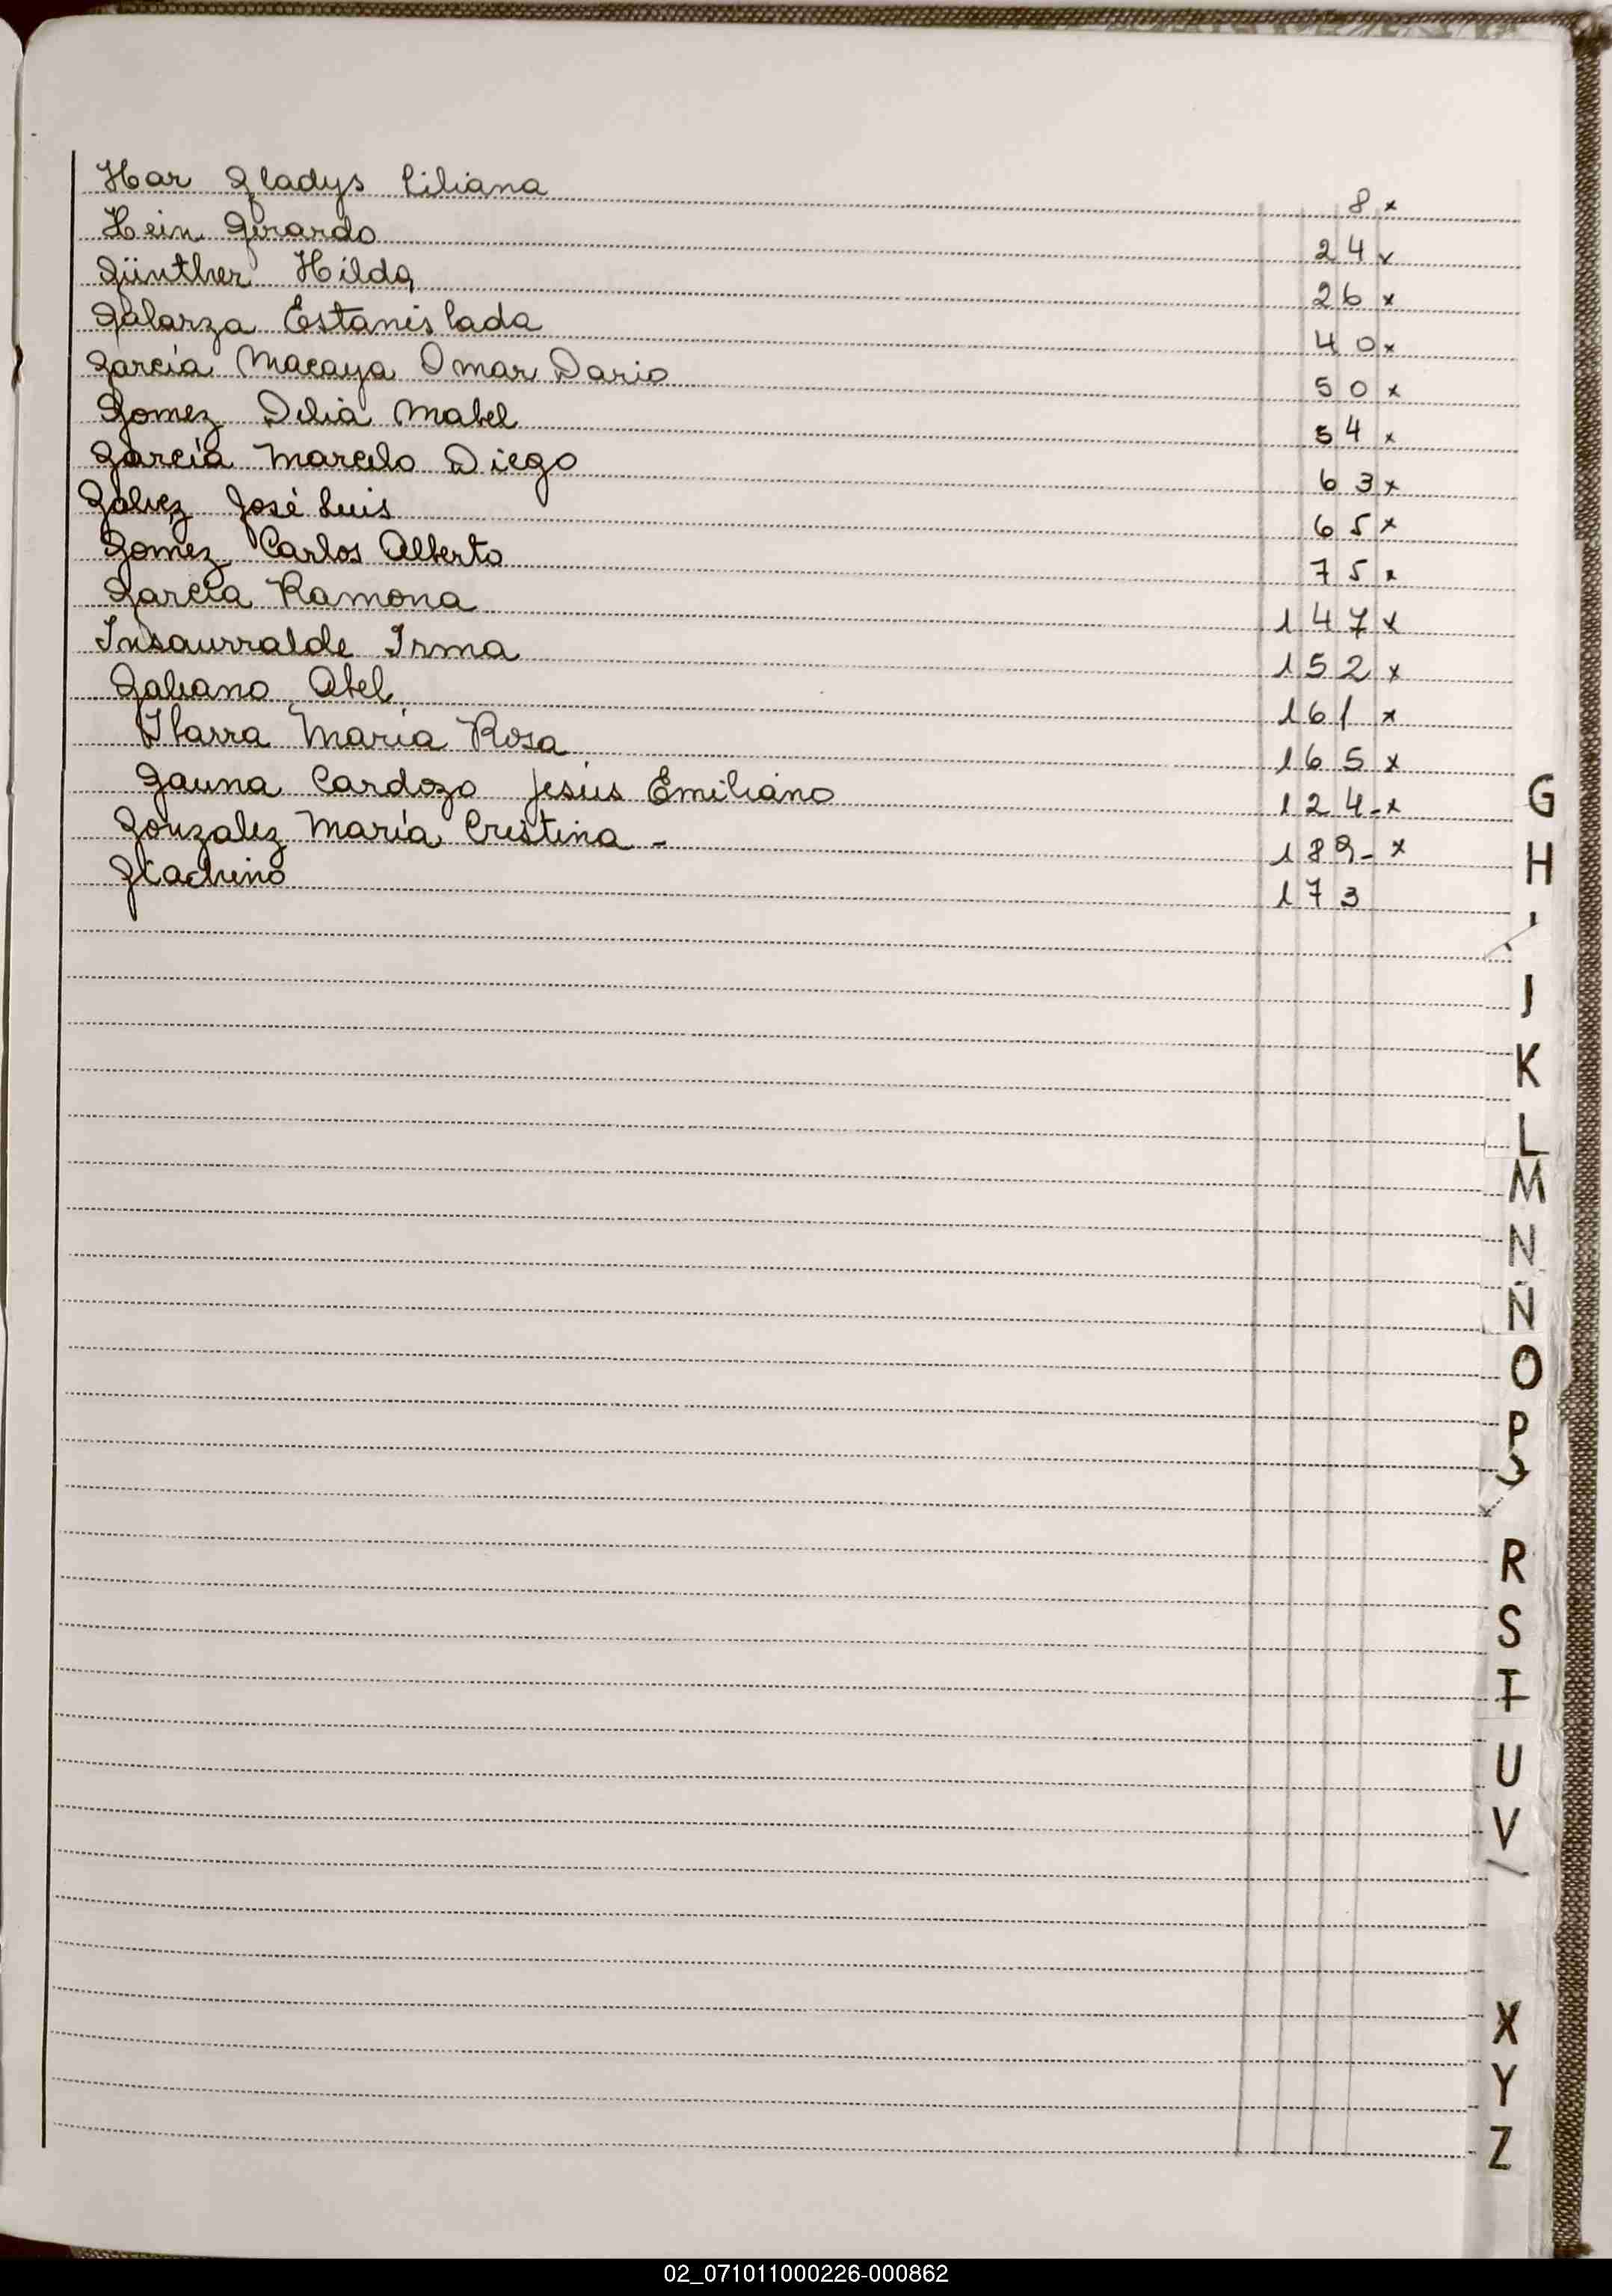 Har Gladys Liliana 8 x
Hein Gerardo 24 x
Günther Hilda 26 x
Galarza Estanislada 40 x
García Macaya Omar Dario 50 x
Gomez Delia Mabel 54 x
García Marcelo Diego 63 x
Galvez José Luis 65 x
Gomez Carlos Alberto 75 x
García Ramona 147 x
Insaurralde Irma 152 x
Galiano Abel 161 x
Ibarra María Rosa 165 x
Gauna Cardozo Jesús Emiliano 124 - x
Gonzalez María Cristina - 189 - x
Giachino 173
G
H
J
K
L
M
N
Ñ
O
P
R
S
T
U
V
X
Y
Z
02_071011000226-000862